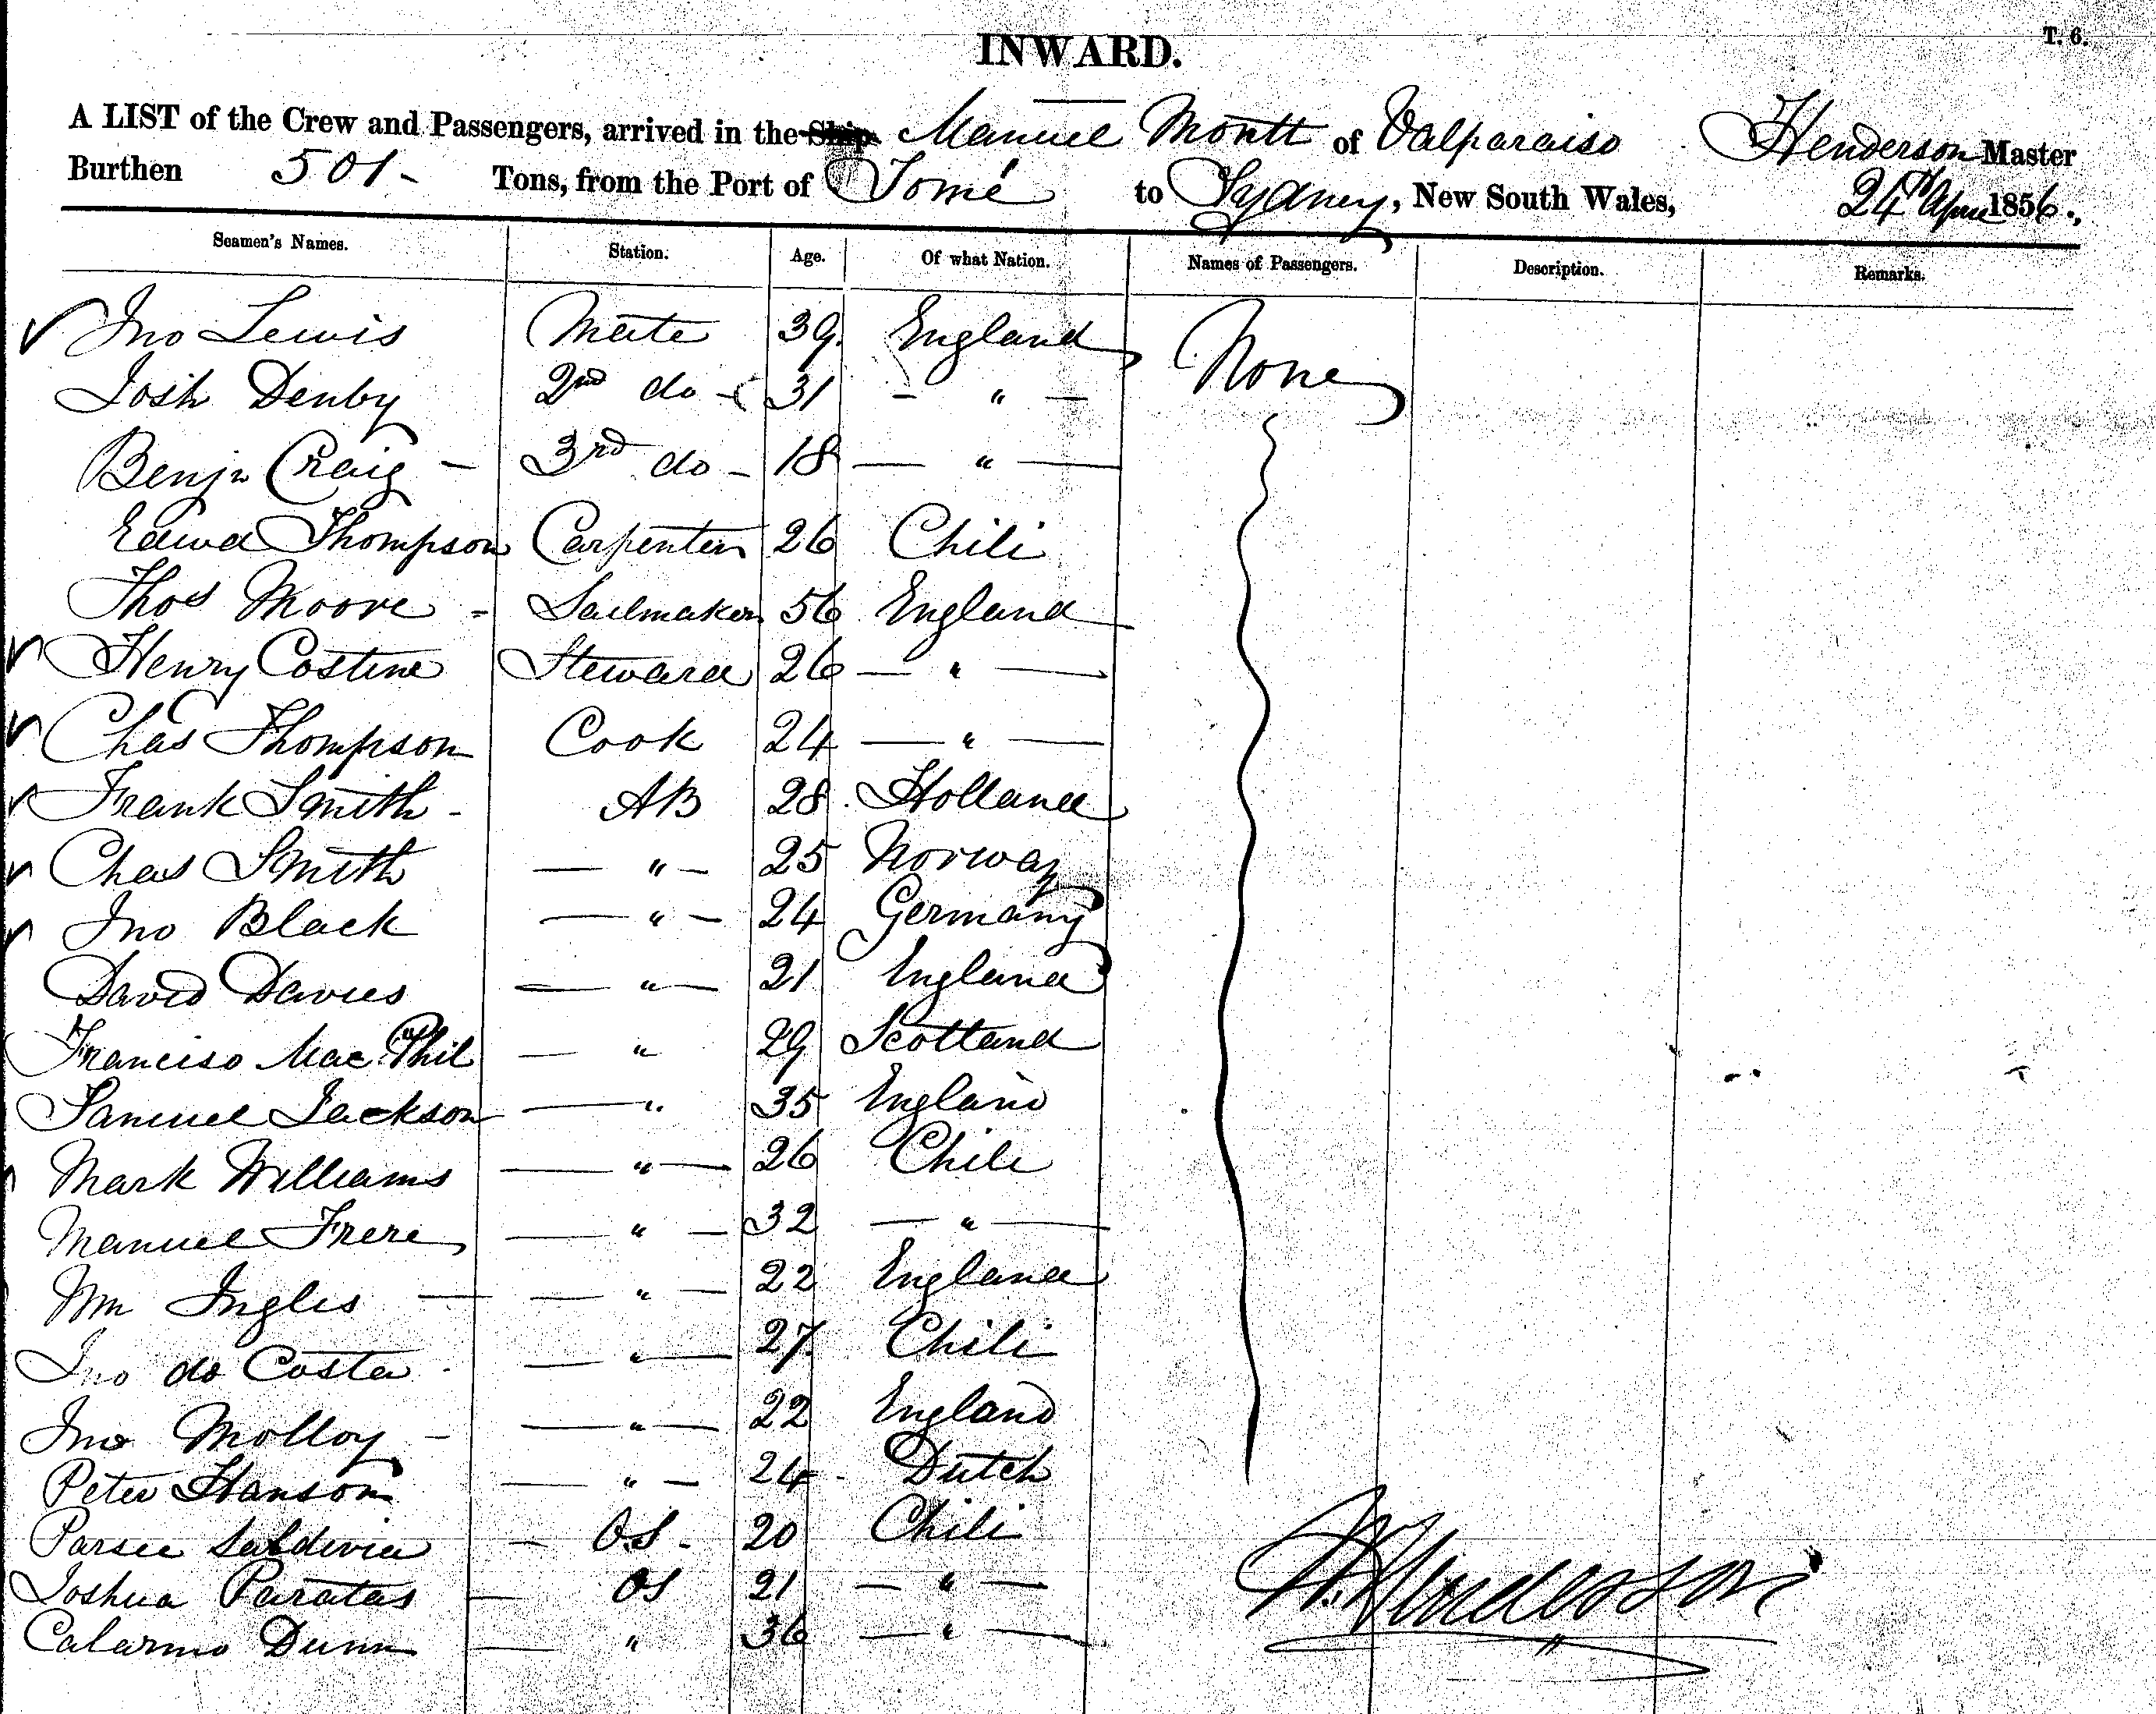 T. 6.
INWARD.
A LIST of the Crew and Passengers, arrived in the Ship Manuel Montt of Valparaiso Henderson Master
Burthen 501 - Tons, from the Port of Tomé to Sydney, New South Wales, 24th April 1856.
Seamen's Names. Station. Age. Of what Nation. Names of Passengers. Description. Remarks.
Jno Lewis Mate 39 England None
Josh Denby 2nd do - 31 - " -
Benjn Craig - 3rd do - 18 - " -
Edwd Thompson Carpenter 26 Chili
Thos Moore - Sailmaker 56 England
Henry Costine Steward 26 - " -
Chas Thompson Cook 24 - " -
Frank Smith - AB 28 Holland
Chas Smith - " - 25 Norway
Jno Black - " - 24 Germany
David Davies - " - 21 England
Franciso Mac Phil - " 29 Scotland
Samuel Jackson - " 35 England
Mark Williams - " - 26 Chili
Manuel Frere - " - 32 - " -
Wm Ingles - - " - 22 England
Jno do Costa - " - 27 Chili
Jno Molloy - - " - 22 England
Peter Hanson - " - 24 - Dutch
Parsee Saldivia - OS - 20 Chili
Joshua Paratas - OS 21 - " -
Calarmo Dunn - " 36 - " -
Henderson